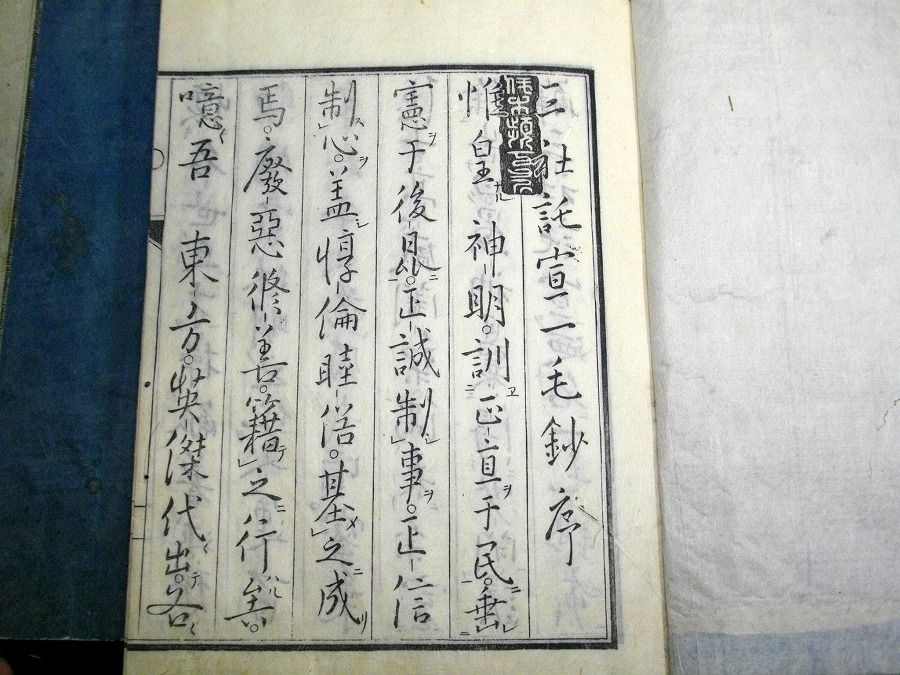 三社託宣一毛鈔序
惟皇神明。訓正直于民。垂
憲于後昆。正誠制事。正信
制心。蓋惇倫睦俗。基之成
焉。廢惡脩善。籍之行矣。
噫吾東方。英傑代出。各